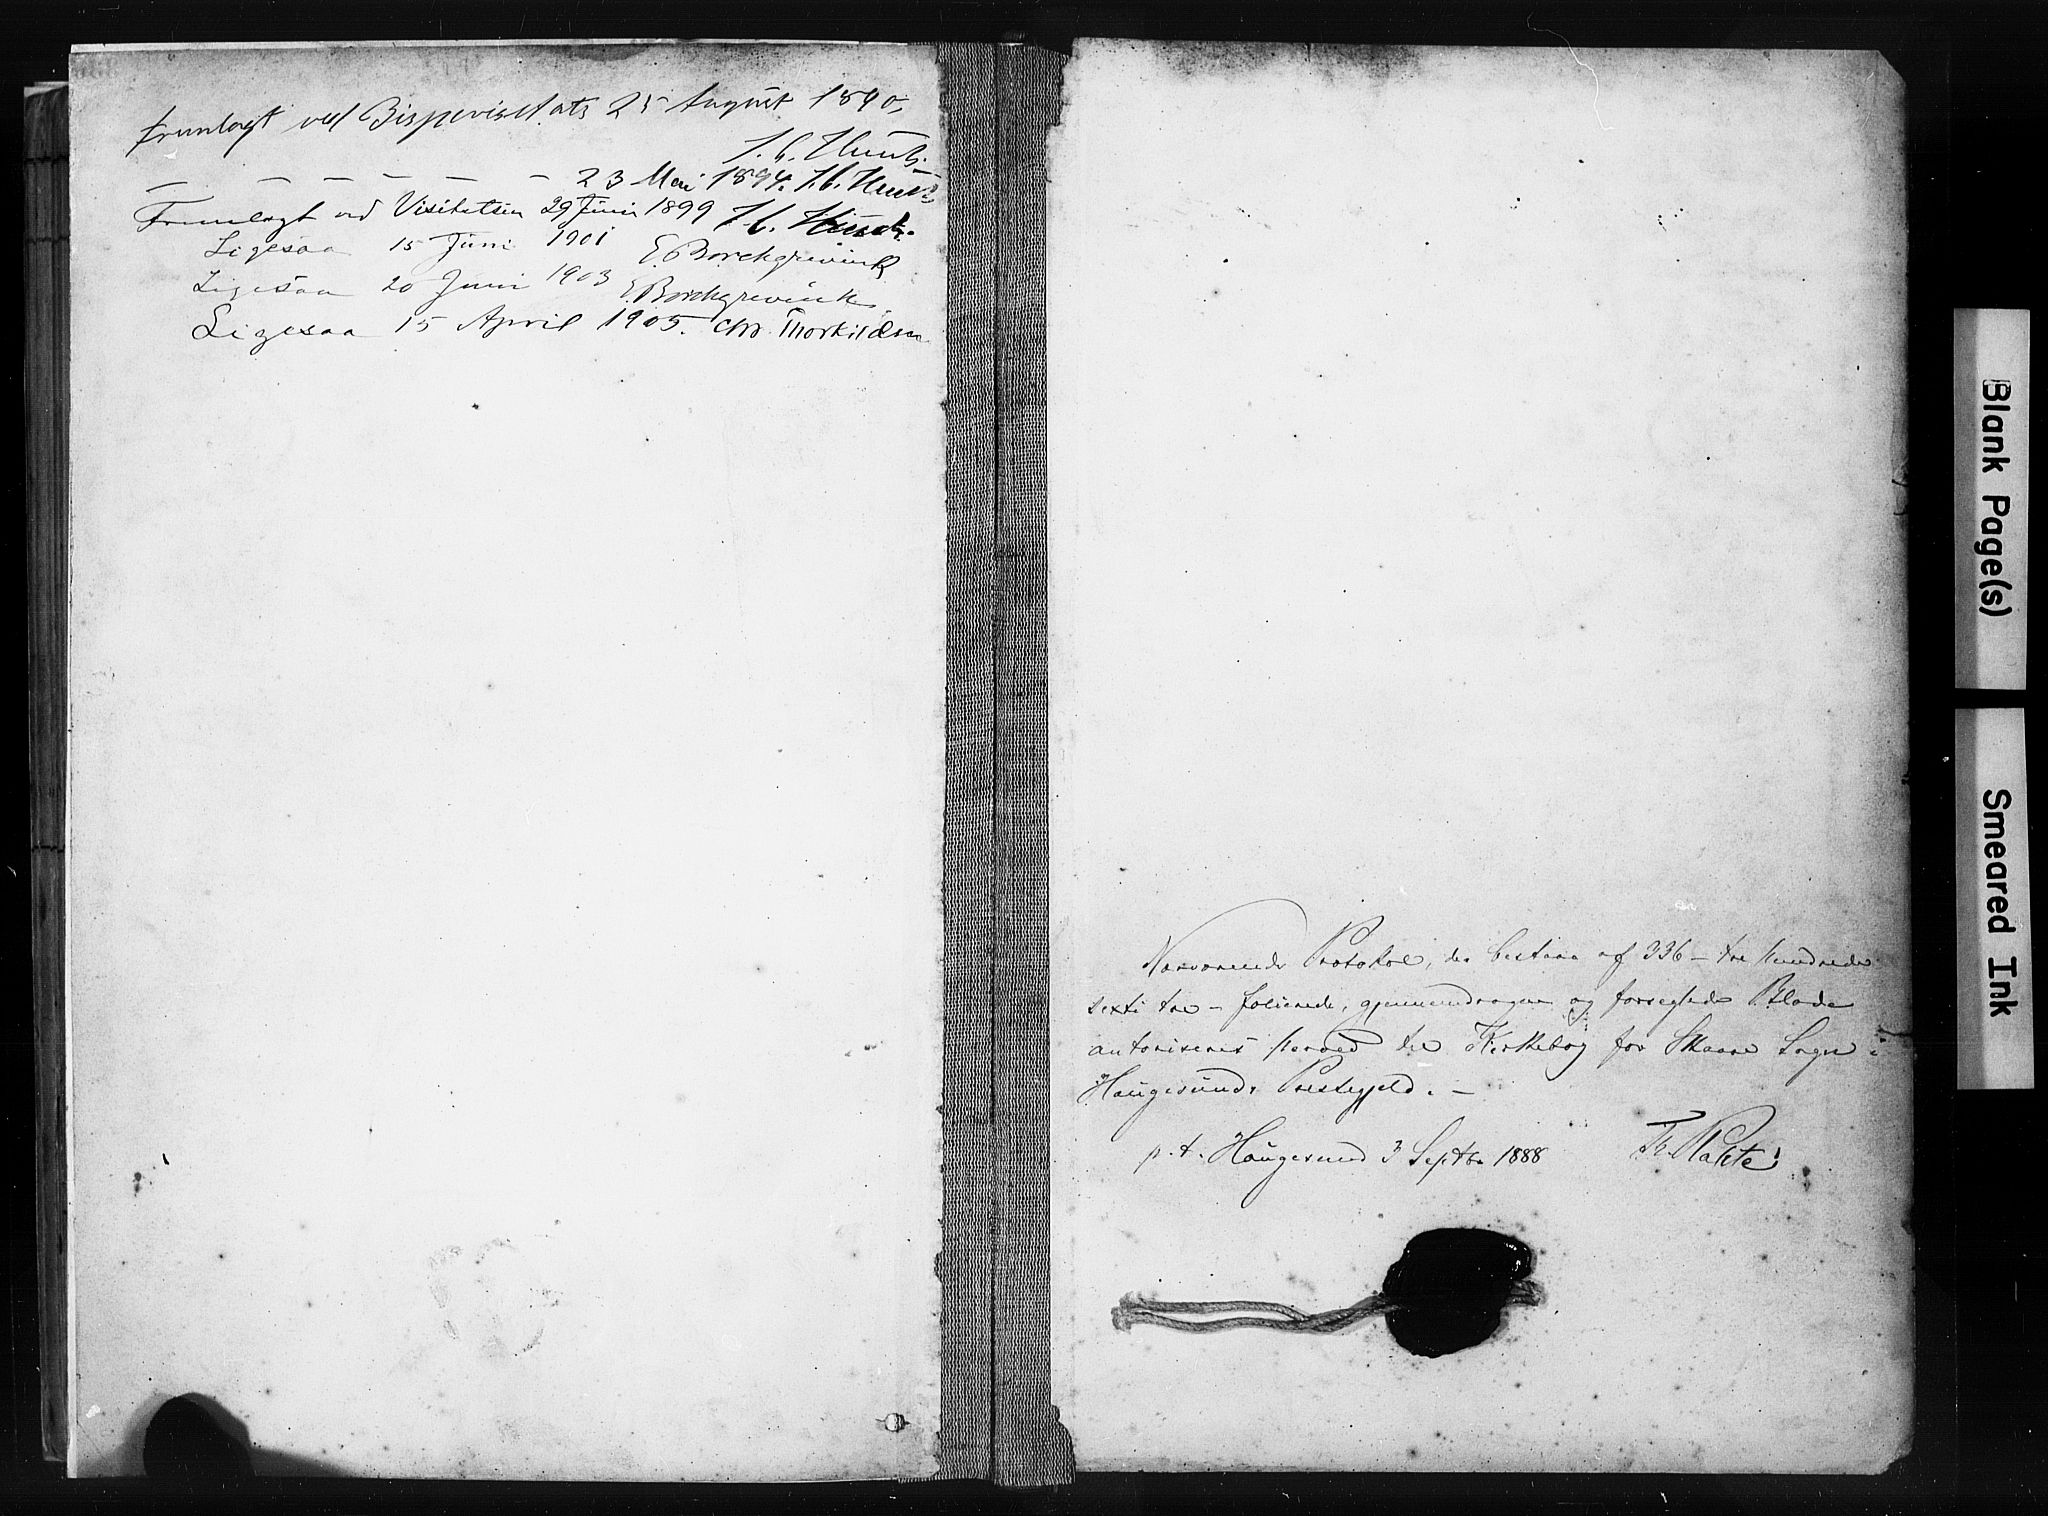 Fremlagt ved Bispevisitats 25 August 1890,
23 Mai 1894.
Fremlagt ved Visitatsen 29 Juni 1899
Ligesaa 15 Juni 1901 E. Borchgrevink
Ligesaa 20 Juni 1903 E. Borchgrevink
Ligesaa 15 April 1905. Chr. Thorkildsen
Nærværende Protokol, der bestaar af 336 - tre hundrede
sexti tre - folierede, gjennemdragne og forseglede Blade
autoriseres herved til Kirkebog for Skaare Sogn i
Haugesunds Prestegjeld. -
p. t. Haugesund 3 Septbr 1888
Blank Page(s)
Smeared Ink